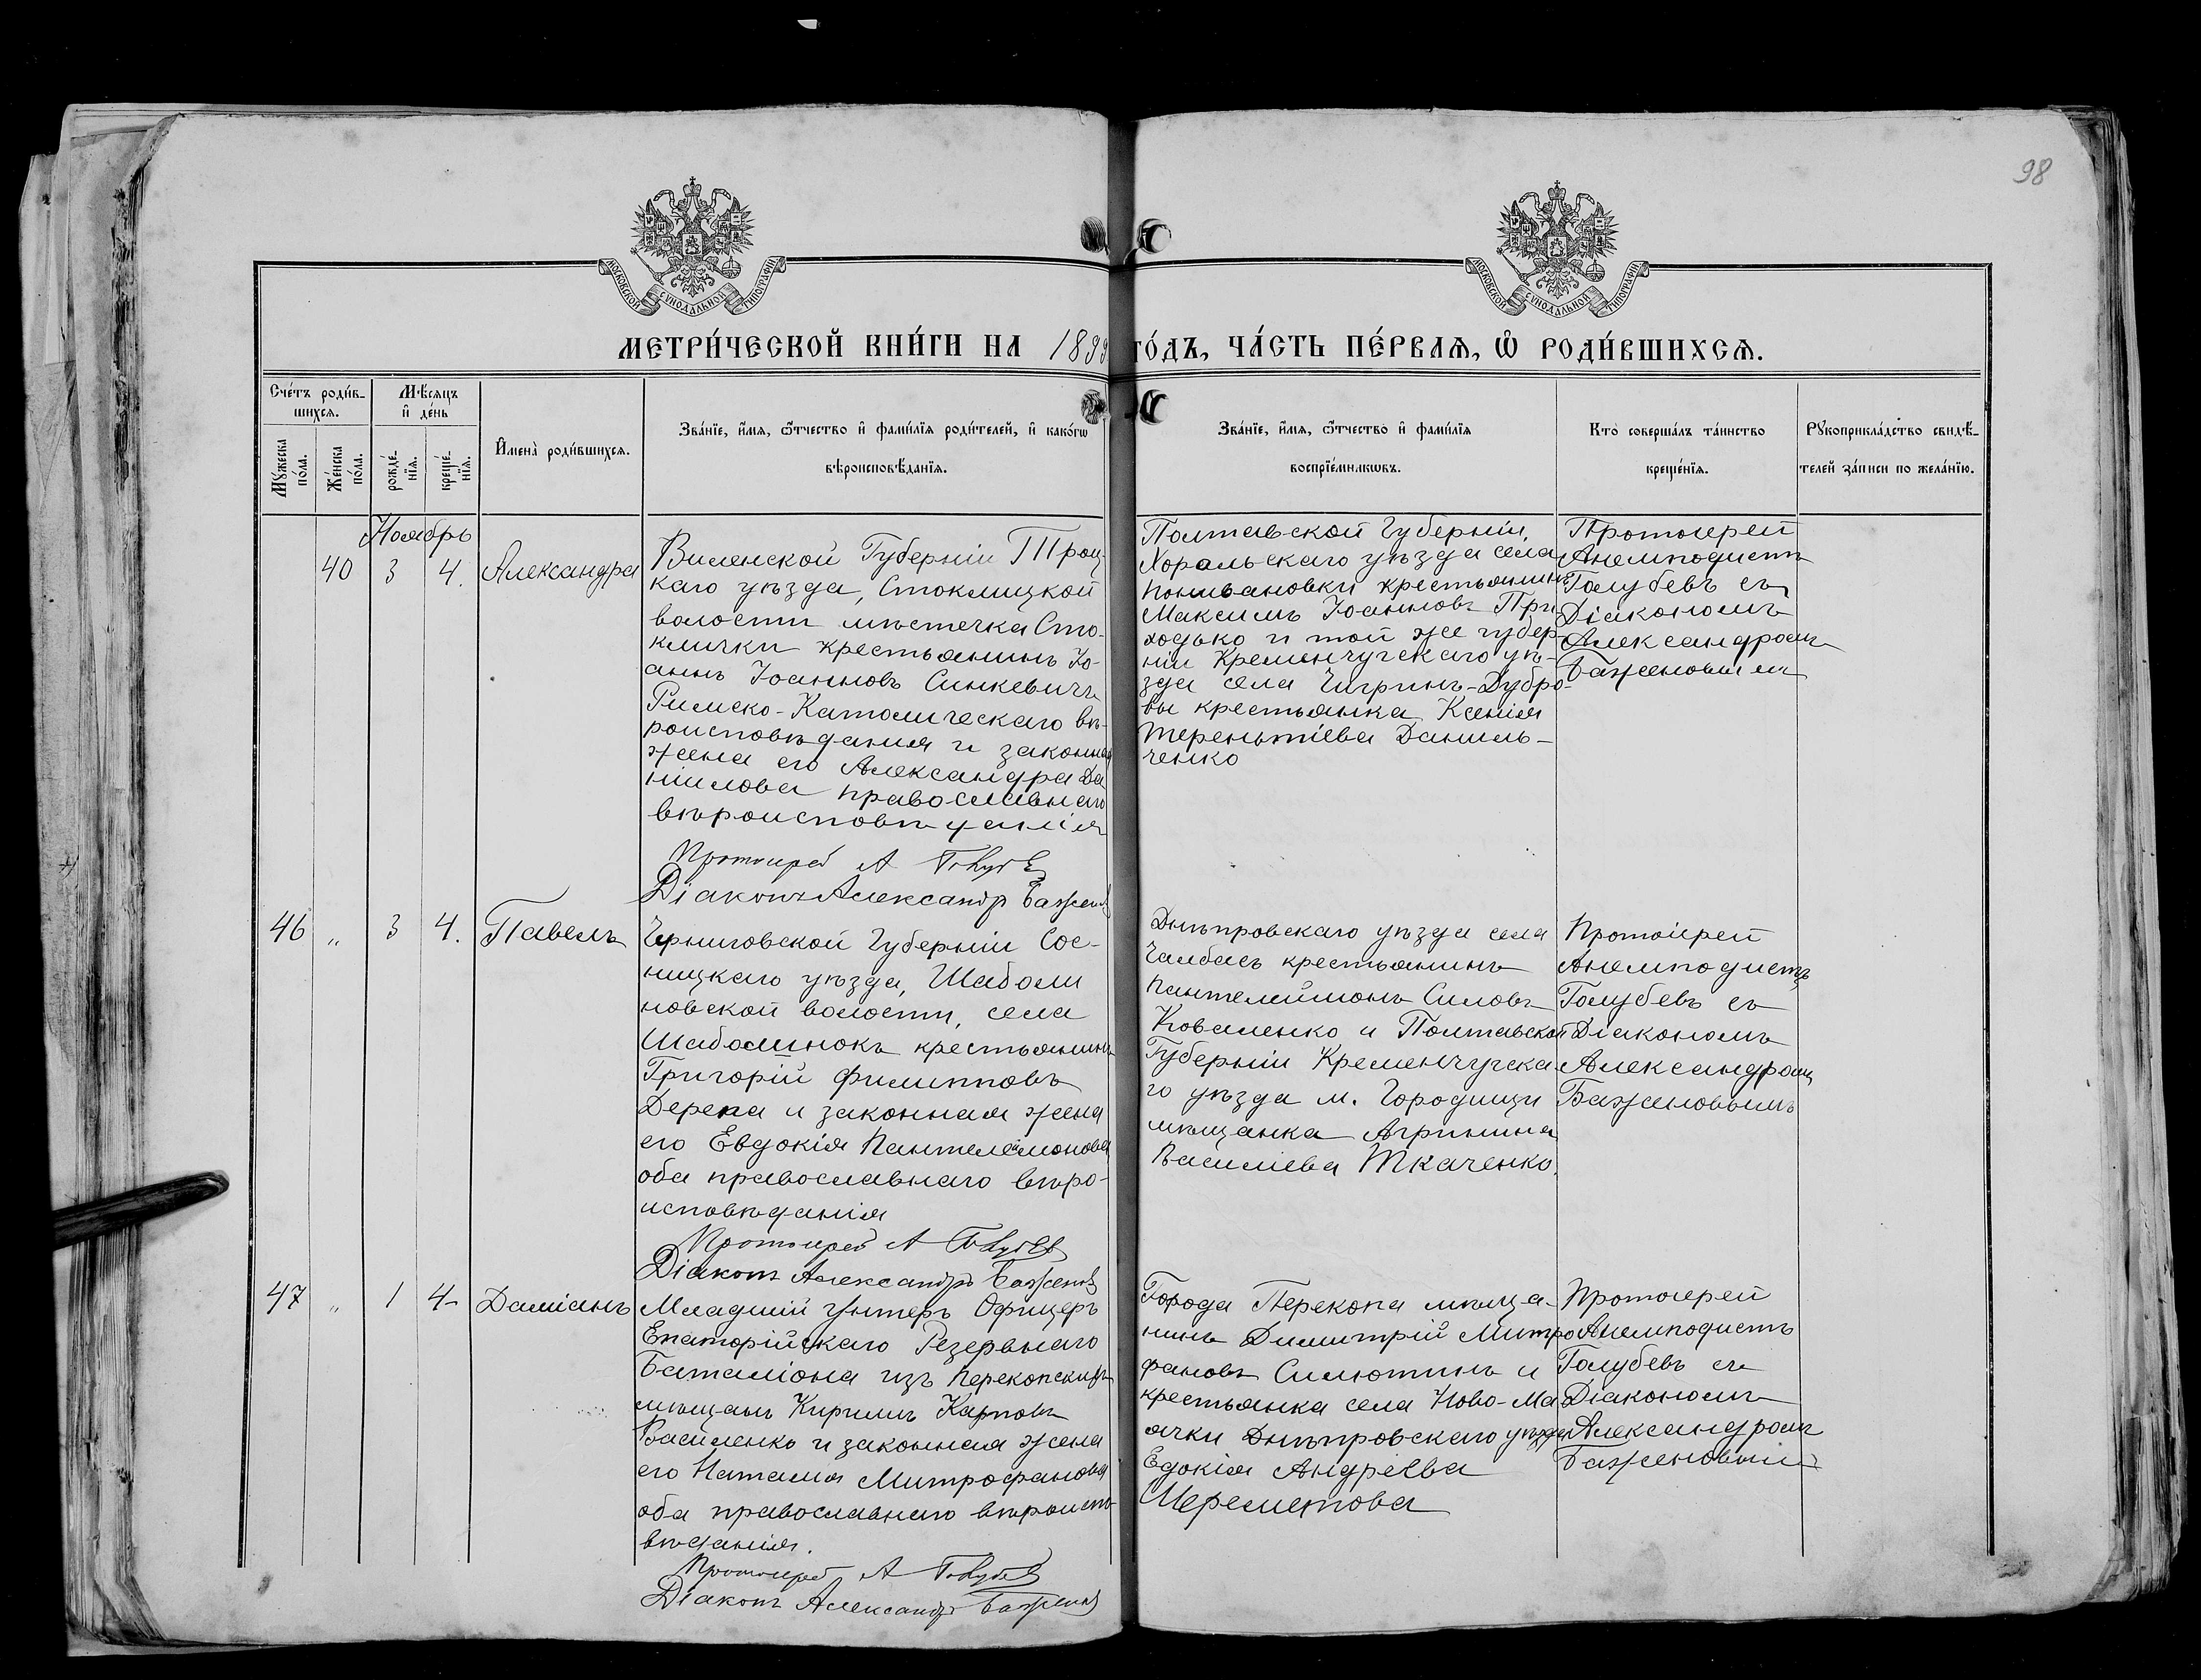 98
МОСКОВСКОЙ СѴНОДАЛЬНОЙ ТИПОГРАФІИ
МОСКОВСКОЙ СѴНОДАЛЬНОЙ ТИПОГРАФІИ
МЕТРИ́ЧЕСКОЙ КНИ́ГИ НА 1899 ГО́ДЪ, ЧА́СТЬ ПЕ́РВАѦ, Ѡ РОДИ́ВШИХСѦ.
Сче́тъ роди́в-
шихсѧ.
Мꙋ́жеска
по́ла.
Же́нска
по́ла.
Мѣ́сяцъ
и҆ де́нь
рожде́-
нїѧ.
креще́-
нїѧ.
И҆мена̀ роди́вшихсѧ.
Зва́нїе, и҆́мѧ, ѻ҆́тчество и҆ фами́лїѧ роди́телей, и҆ како́гѡ
вѣроисповѣ́данїѧ.
Зва́нїе, и҆́мѧ, ѻ҆́тчество и҆ фами́лїѧ
воспрїе́мникѡвъ.
Кто̀ соверша́лъ та́инство
креще́нїѧ.
Рꙋкоприкла́дство свидѣ́-
телей за́писи по жела́нїю.
Ноябрь
40 3 4. Александра
Виленской Губерніи Троц-
каго уѣзда, Стоклицкой
волости мѣстечка Сто-
клички крестьянинъ Іо-
аннъ Іоанновъ Синкевичъ
Римско-Католическаго вѣ-
роисповѣданія и законная
жена его Александра Да
ніилова православнаго
вѣроисповѣданія
Протоиерей А Голубев
Діаконъ Александръ Баженов
Полтавской Губерніи,
Хорольскаго уѣзда села
крестьянинъ
Максимъ Іоанновъ При-
ходько и той же губер-
ніи Кременчугскаго уѣ-
зда села Чигринъ-Дубро-
вы крестьянка Ксенія
Терентіева Даниль-
ченко
Протоіерей
Анемподистъ
Голубевъ съ
Діакономъ
Александромъ
Баженовымъ
46 " 3 4. Павелъ
Черниговской Губерніи Сос-
ницкаго уѣзда, Шаболи
новской волости, села
Шаболинокъ крестьянинъ
Григорій Филипповъ
Дерека и законная жена
его Евдокія Пантелеймонова
оба православнаго вѣро-
исповѣданія
Протоиерей А Голубев
Діаконъ Александръ Баженов
Днѣпровскаго уѣзда села
Чалбасъ крестьянинъ
Пантелеймонъ Силовъ
Коваленко и Полтавской
Губерніи Кременчугска
го уѣзда м. Городищи
мѣщанка Агрипина
Василіева Ткаченко.
Протоіерей
Анемподистъ
Голубевъ съ
Діакономъ
Александромъ
Баженовымъ
47 " 1 4 Даміанъ
Младшій Унтеръ Офицеръ
Евпаторійскаго Резервнаго
Баталіона изъ Перекопскихъ
мѣщанъ Кириллъ Карповъ
Василенко и законная жена
его Наталия Митрофанова
оба православнаго вѣроиспо-
вѣданія.
Протоиерей А Голубев
Діаконъ Александръ Баженов
Города Перекопа мѣща-
нинъ Димитрій Митро
фановъ Силютинъ и
крестьянка села Ново-Ма
ячки Днѣпровскаго уѣзда
Едокія Андреева
Шереметова
Протоіерей
Анемподистъ
Голубевъ съ
Діакономъ
Александромъ
Баженовымъ